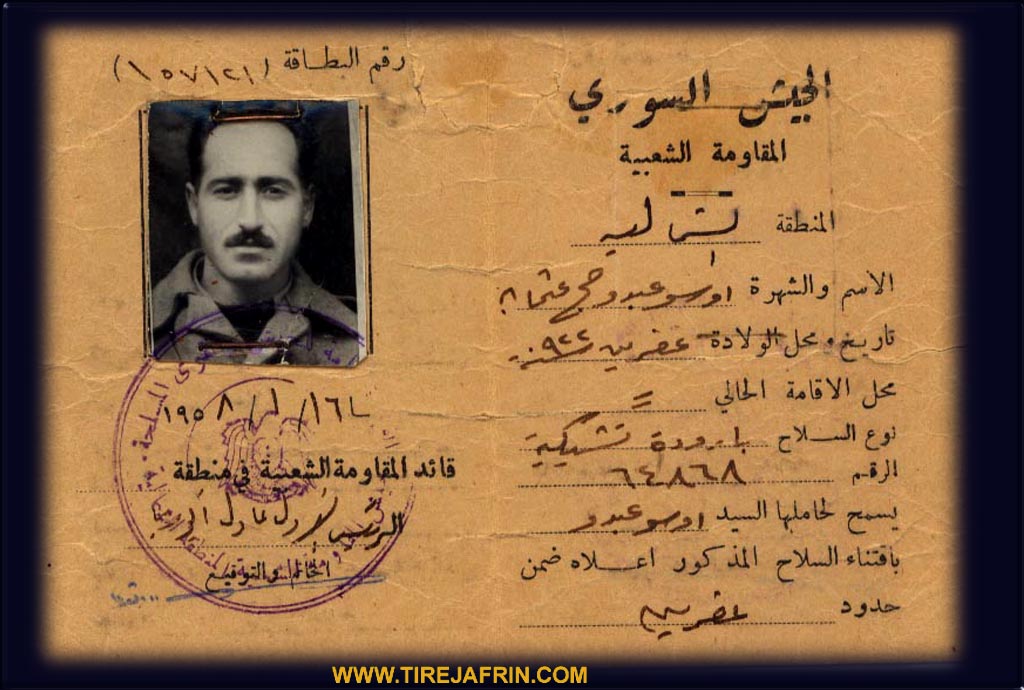 الجيش السوري
المقاومة الشعبية
المنطقة
الاسم والشهرة اوسو عبدو حج عثمان
تاريخ ومحل الولادة عفرين سنة ٩٢٢
محل الاقامة الحالي =
نوع السلاح بارودة تشيكية
الرقم ٦٤٨٦٨
يسمح لحاملها السيد اوسو عبدو
باقتناء السلاح المذكور اعلاه ضمن
حدود عفرين
رقم البطاقة (١٥٧١٢١)
١٩٥٨/١/١٦
قائد المقاومة الشعبية في منطقة
الرئيس الاول عادل
الخاتم والتوقيع
WWW.TIREJAFRIN.COM